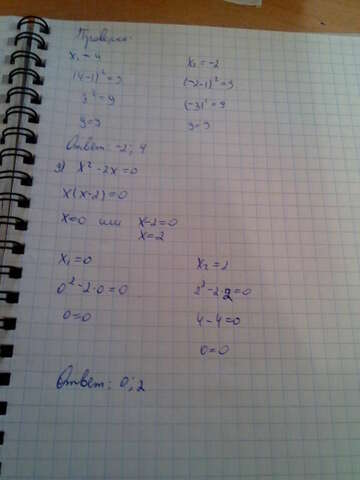 Проверка:
x₁ = 4 x₂ = -2
(4-1)² = 9 (-2-1)² = 9
3² = 9 (-3)² = 9
9 = 9 9 = 9
Ответ: -2; 4
д) x² - 2x = 0
x(x-2) = 0
x = 0 или x-2 = 0
x = 2
x₁ = 0 x₂ = 2
0² - 2·0 = 0 2² - 2·2 = 0
0 = 0 4 - 4 = 0
0 = 0
Ответ: 0; 2